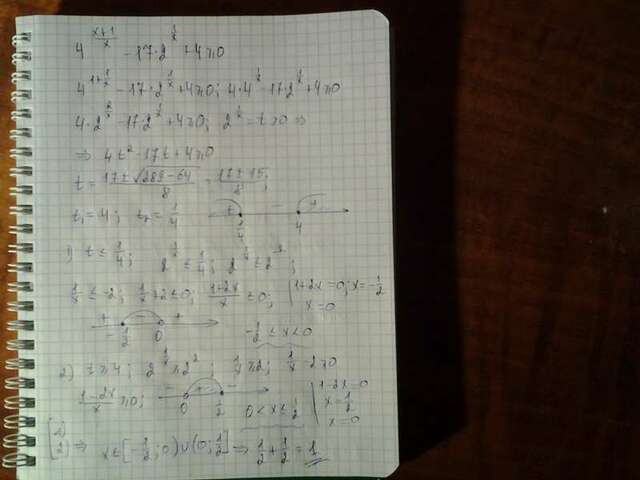 4^((x+1)/x) - 17·2^(1/x) + 4 ≥ 0
4^(1+1/x) - 17·2^(1/x) + 4 ≥ 0; 4·4^(1/x) - 17·2^(1/x) + 4 ≥ 0
4·2^(2/x) - 17·2^(1/x) + 4 ≥ 0; 2^(1/x) = t > 0 ⇒
⇒ 4t² - 17t + 4 ≥ 0
t = (17 ± √(289 - 64))/8 = (17 ± 15)/8;
t₁ = 4; t₂ = 1/4 + - + 1/4 4
1) t ≤ 1/4; 2^(1/x) ≤ 1/4; 2^(1/x) ≤ 2^(-2);
1/x ≤ -2; 1/x + 2 ≤ 0; (1+2x)/x ≤ 0; | 1+2x = 0; x = -1/2
x = 0
+ - + -1/2 0 -1/2 ≤ x < 0
2) t ≥ 4; 2^(1/x) ≥ 2²; 1/x ≥ 2; 1/x - 2 ≥ 0
(1-2x)/x ≥ 0; - + - 0 1/2 0 < x ≤ 1/2 | 1-2x = 0
x = 1/2
x = 0
[1) 2) ⇒ x ∈ [-1/2; 0) ∪ (0; 1/2] ⇒ 1/2 + 1/2 = 1